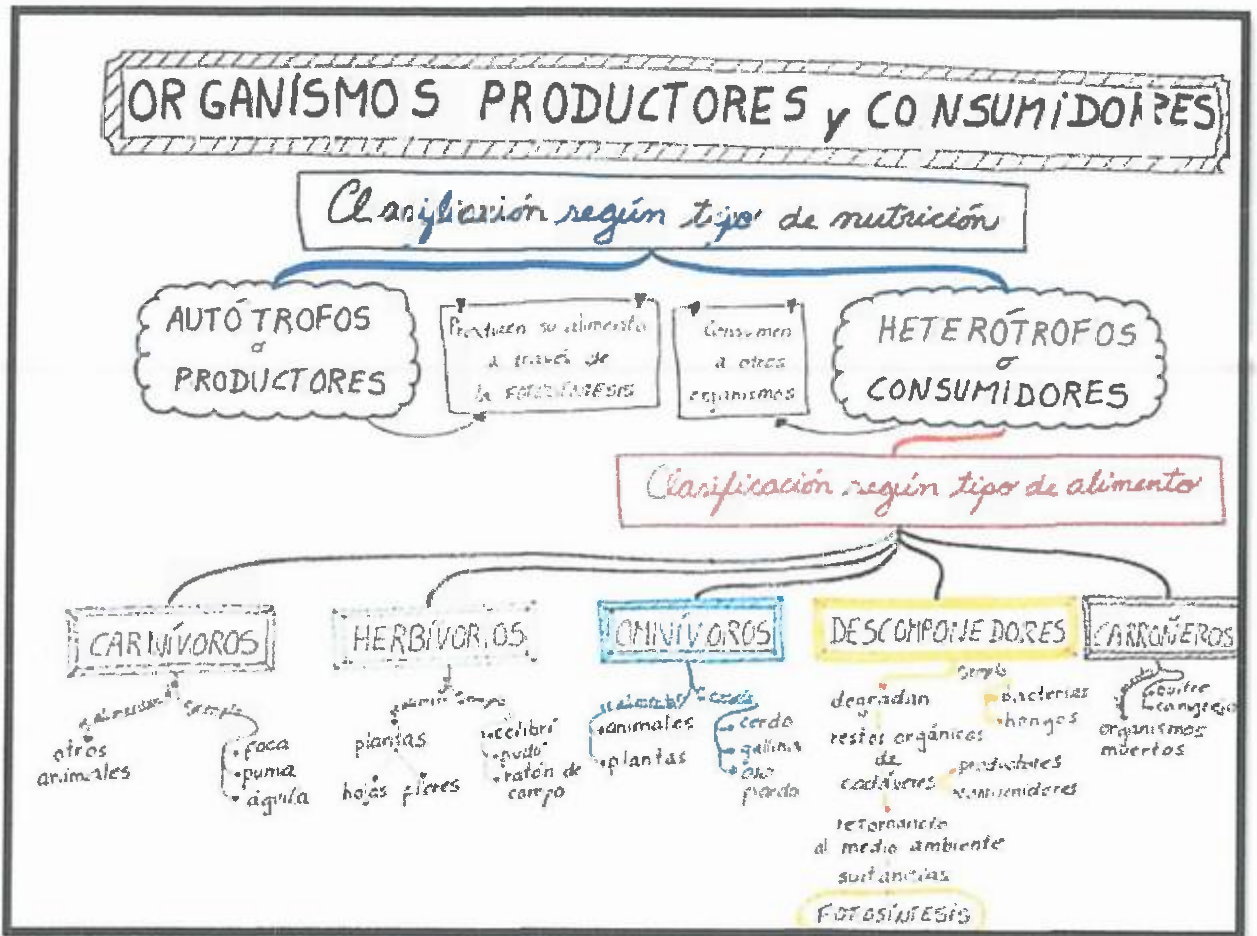 ORGANÍSMOS PRODUCTORES y CONSUMIDORES
Clasificación según tipo de nutrición
AUTÓTROFOS
o
PRODUCTORES
Producen su alimento
a través de
la FOTOSÍNTESIS
Consumen
a otros
organismos
HETERÓTROFOS
o
CONSUMIDORES
Clasificación según tipo de alimento
CARNÍVOROS
alimentan
ejemplo
otros
animales
foca
puma
águila
HERBÍVOROS
ejemplo
plantas
hojas flores
colibrí
pudú
ratón de
campo
OMNÍVOROS
animales
plantas
cerdo
gallina
oso
pardo
DESCOMPONEDORES
ejemplo
degradan
restos orgánicos
de
cadáveres
bacterias
hongos
productores
consumidores
retornando
al medio ambiente
sustancias
FOTOSÍNTESIS
CARROÑEROS
buitre
cangrejo
organismos
muertos